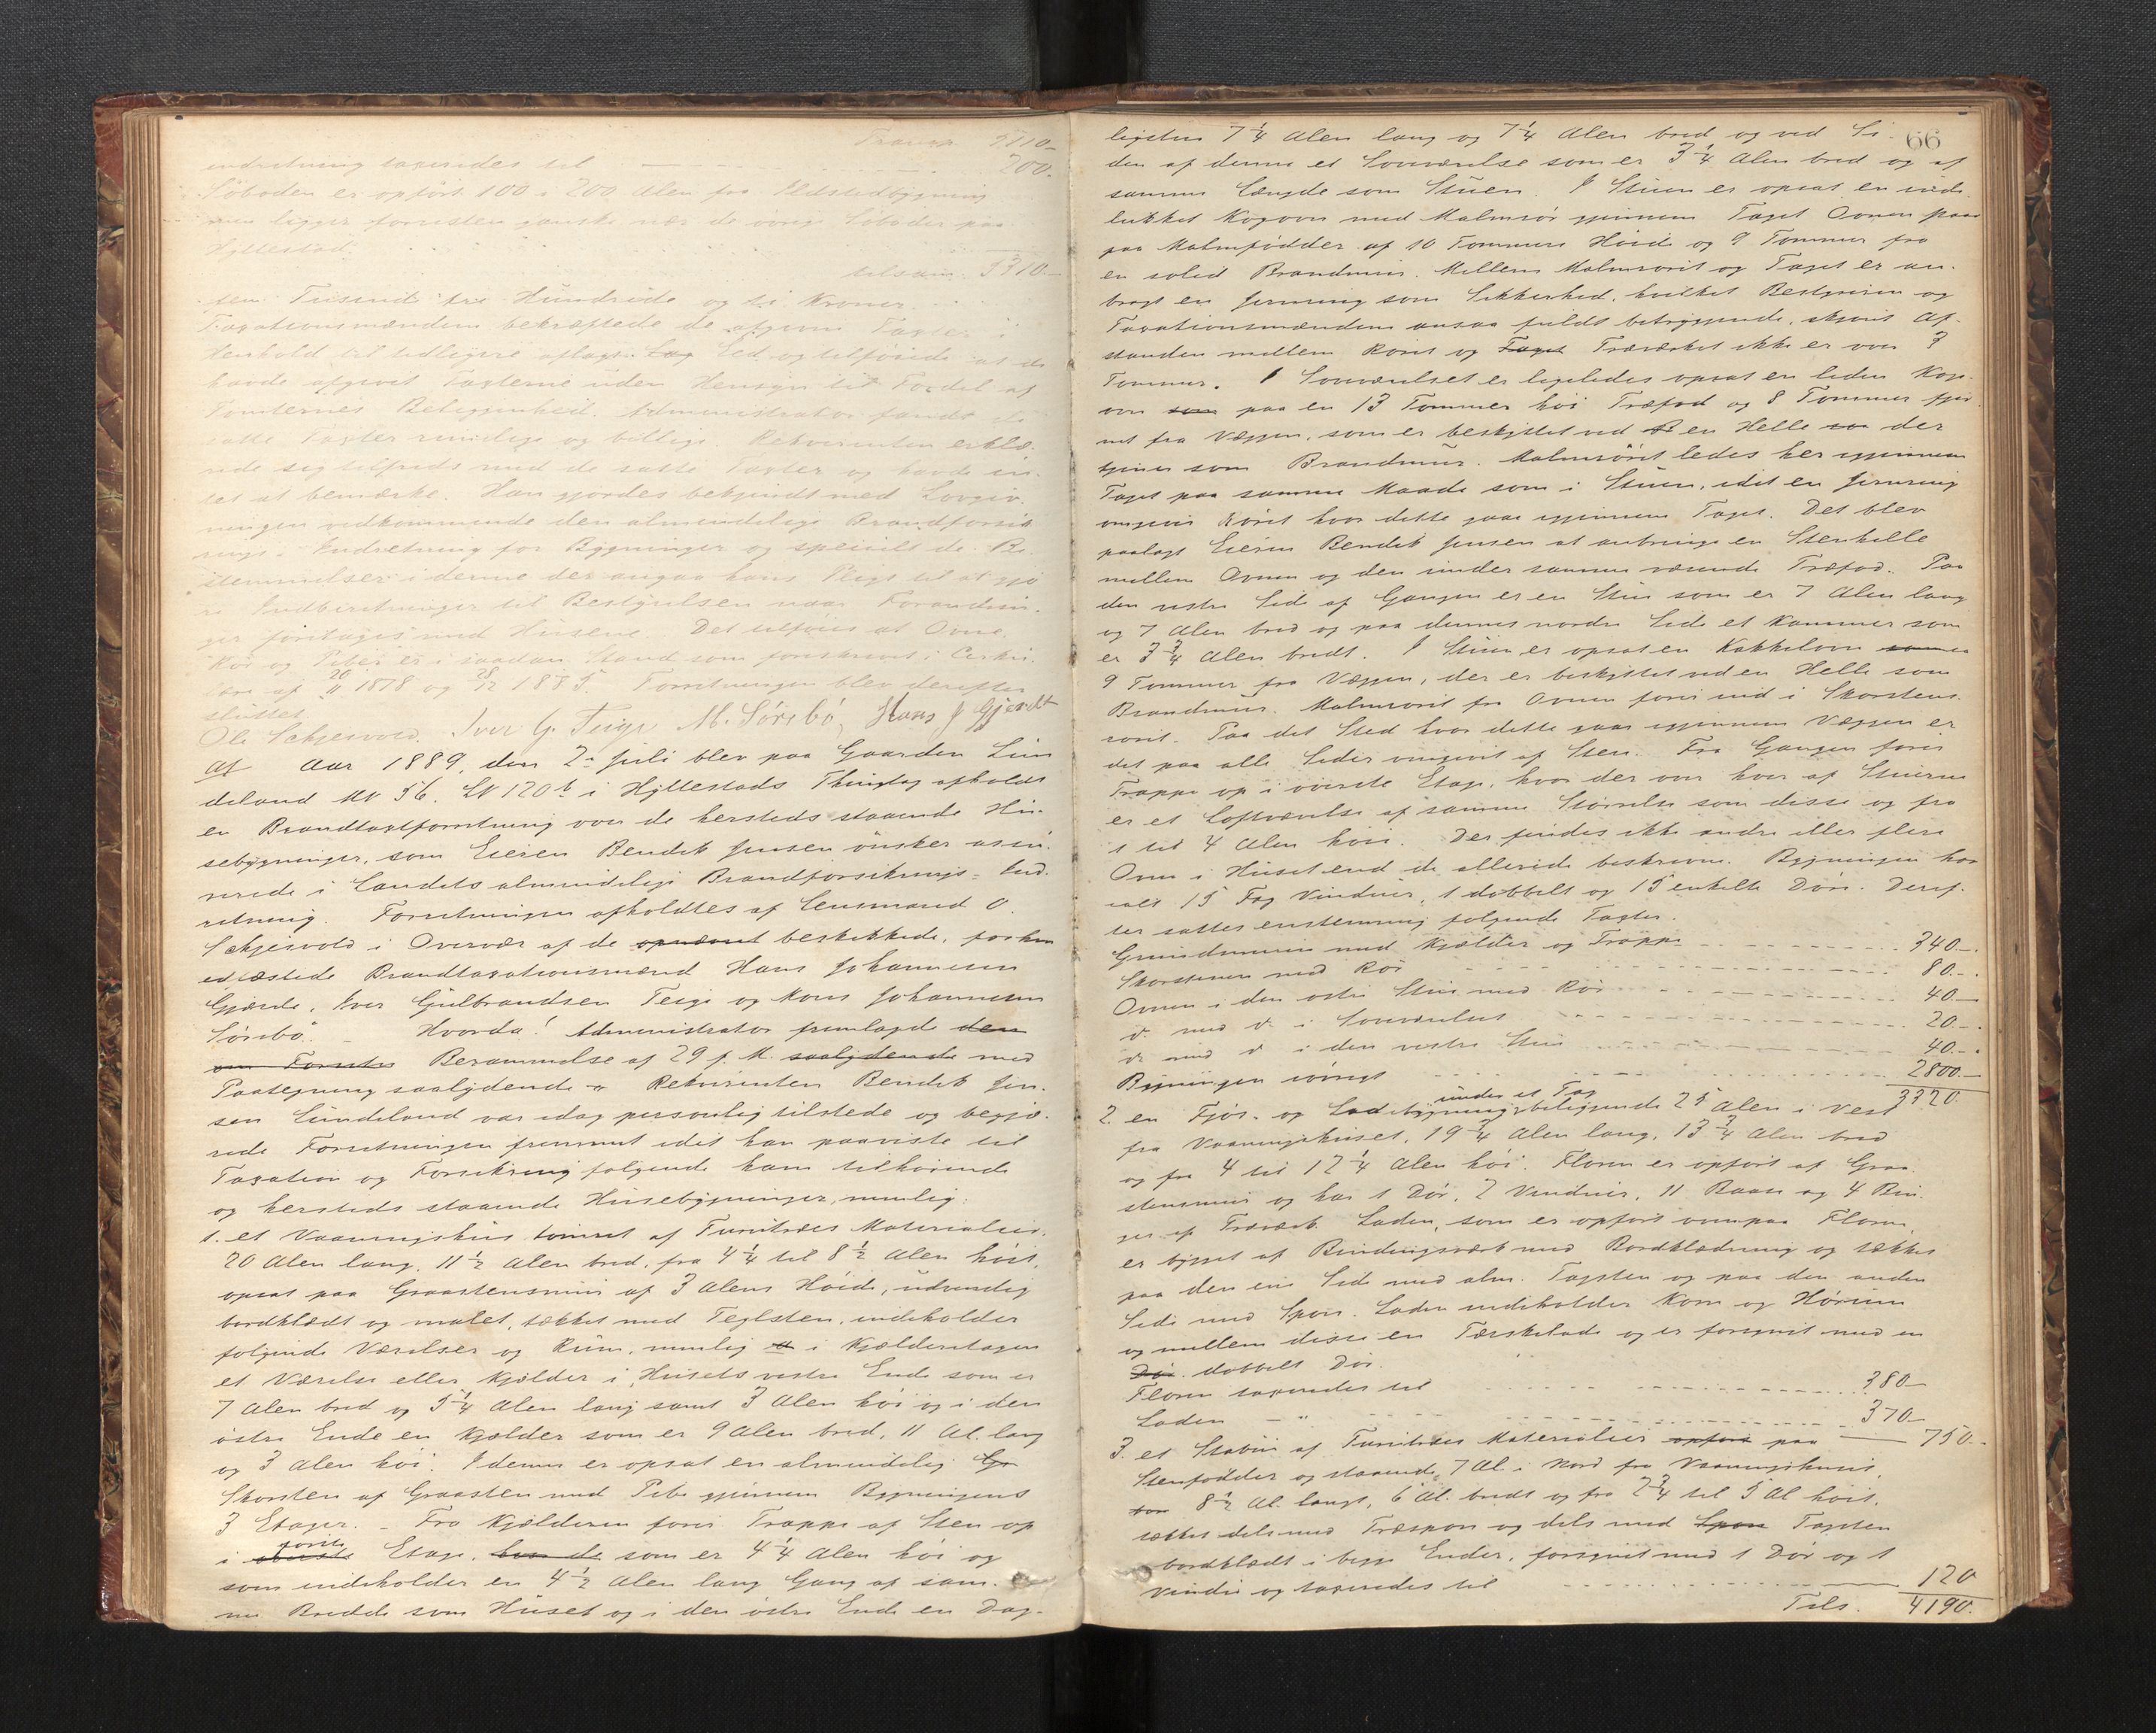 Transp. 5110-
indretning taxeredes til — 200.
Söboden er opfört 100 a 200 Alen fra Ildstedbygning
men ligger forresten ganske nær de övrige Söboder paa
Hyllestad.
tilsam. 5310.-
fem Tusend tre Hundrede og ti Kroner.
Taxationsmændene bekræftede de afgivne Taxter i
Henhold til tidligere aflagt Eed og tilföiede at de
havde afgivet Taxterne uden Hensyn til Fordel af
Tomternes Beliggenhed. Administrator fandt de
satte Taxter rimelige og billige. Rekvirenten erklæ-
rede sig tilfreds med de satte Taxter og havde in-
tet at bemærke. Han gjordes bekjendt med Lovgiv-
ningen vedkommende den almindelige Brandforsik-
rings-Indretning for Bygninger og specielt de Be-
stemmelser i denne der angaa hans Pligt til at gjö-
re Indberetninger til Bestyrelsen naar Forandrin-
ger foretages med Husene. Det tilföies at Ovne,
Rör og Piber er i saadan Stand som foreskrevet i Cirku-
lære af 20/11 1878 og 28/12 1885. Forretningen blev derefter
sluttet.
Ole Schjesvold. Iver G. Teige M. Sörebö, Hans J Gjerde
Af Aar 1889, den 2. Juli blev paa Gaarden Lun
deland MN 56. LN 120 b i Hyllestads Thinglag afholdt
en Brandtaxtforretning over de hersteds staaende Hu-
sebygninger, som Eieren Bendik Jensen önsker assu-
rerede i Landets almindelige Brandforsikrings-Ind-
retning. Forretningen afholdtes af Lensmand O.
Schjesvold i Overvær af de opnævnt beskikkede, forhen
edfæstede Brandtaxationsmænd Hans Johannesen
Gjerde, Iver Gulbrandsen Teige og Mons Johannesen
Sörebö. — Hvorda! Administrator fremlagde den
om Forretn Berammelse af 29 f. M. saalydende med
Paategning saalydende — Rekvirenten Bendik Jen-
sen Lundeland var idag personlig tilstede og begjæ-
rede Forretningen fremmet idet han paaviste til
Taxation og Forsikring fölgende ham tilhörende
og hersteds staaende Husebygninger, nemlig:
1. et Vaaningshus tömret af Furutræes Materialier.
20 Alen lang, 11 1/2 Alen bred, fra 4 1/4 til 8 1/2 Alen höit,
opsat paa Graastensmur af 3 Alens Höide, udvendig
bordklædt og malet, tækket med Teglsten, indeholder
fölgende Værelser og Rum, nemlig a i Kjælderetagen
et Værelse eller Kjælder i Husets vestre Ende som er
7 Alen bred og 5 1/4 Alen lang samt 3 Alen höi og i den
östre Ende en Kjælder som er 9 Alen bred, 11 Al. lang
og 3 Alen höi. I denne er opsat en almindelig Gr
Skorsten af Graasten med Pibe gjennem Bygningens
3 Etager. – Fra Kjælderen förer Trappe af Sten op
i överste förste Etage, hvor de som er 4 1/4 Alen höi og
som indeholder en 4 1/2 Alen lang Gang af sam-
me Bredde som Huset og i den östre Ende en Dag-
66
ligstue 7 1/4 Alen lang og 7 1/4 Alen bred og ved Si-
den af denne et Soveværelse som er 3 1/4 Alen bred og af
samme Længde som Stuen. I Stuen er opsat en inde
lukket Kogovn med Malmrör gjennem Taget Ovnen paa
paa Malmfödder af 10 Tommers Höide og 9 Tommer fra
en solid Brandmur. Mellem Malmröret og Taget er an-
bragt en Jernring som Sikkerhed, hvilket Bestyreren og
Taxationsmændene ansaa fuldt betryggende, skjönt Af-
standen mellem Röret og Taget Træværket ikke er over 3
Tommer. I Soveværelset er ligeledes opsat en liden Kog-
ovn som paa en 13 Tommer höi Træfod og 8 Tommer fjer
net fra Væggen, som er beskyttet ved en Helle der
tjener som Brandmur. Malmröret ledes her gjennem
Taget paa samme Maade som i Stuen, idet en Jernring
omgiver Röret hvor dette gaar igjennem Taget. Det blev
paalagt Eieren Bendik Jensen at anbringe en Stenhelle
mellem Ovnen og den under samme værende Træfod. Paa
den vestre Side af Gangen er en Stue som er 7 Alen lang
og 7 Alen bred og paa dennes nordre Side et Kammer som
er 3 3/4 Alen bredt. I Stuen er opsat en Kakkelovn som er
9 Tommer fra Væggen, der er beskyttet ved en Helle som
Brandmur. Malmröret fra Ovnen förer ind i Skorstens-
röret. Paa det Sted hvor dette gaar igjennem Væggen er
det paa alle Sider omgivet af Sten. Fra Gangen förer
Trappe op i överste Etage, hvor der over hver af Stuerne
er et Loftværelse af samme Störrelse som disse og fra
1 til 4 Alen höie. Der findes ikke andre eller flere
Ovne i Huset end de allerede beskrevne. Bygningen har
ialt 15 Fag Vinduer, 1 dobbelt og 15 enkelte Döre. Deref-
ter sattes enstemmig fölgende Taxter.
Grundmuren med Kjælder og Trappe 340.-
Skorstenen med Rör 80.-
Ovnen i den östre Stue med Rör 40.-
do. med do. i Soveværelset 20.-
do. med do. i den vestre Stue 40.-
Bygningen iövrigt 2800.-
3320.
2. en Fjös- og Ladebygning under et Tag beliggende 25 Alen i Vest
fra Vaaningshuset, 19 3/4 Alen lang, 13 3/4 Alen bred
og fra 4 til 12 1/4 Alen höi. Floren er opfört af Graa
stensmur og har 1 Dör, 2 Vinduer, 11 Baase og 4 Bin-
ger af Træværk. Laden, som er opfört ovenpaa Floren,
er bygget af Bindingsværk med Bordklædning og tækket
paa den ene Side med alm. Tagsten og paa den anden
Side med Spon. Laden indeholder Korn og Hörum
og mellem disse en Tærskelade og er forsynet med en
Dör. dobbelt Dör.
Floren taxeredes til 380-
Laden — " 370- 750.-
3. et Stabur af Furutræes Materialier opfört paa
Stenfödder og staaende 7 Al. i Nord fra Vaaningshuset,
8 1/2 Al. langt, 6 Al. bredt og fra 2 3/4 til 5 Al höit,
tækket dels med Træspon og dels med Spon Tagsten
bordklædt i begge Ender, forsynet med 1 Dör og 1
Vindu og taxeredes til 120
Tils. 4190.